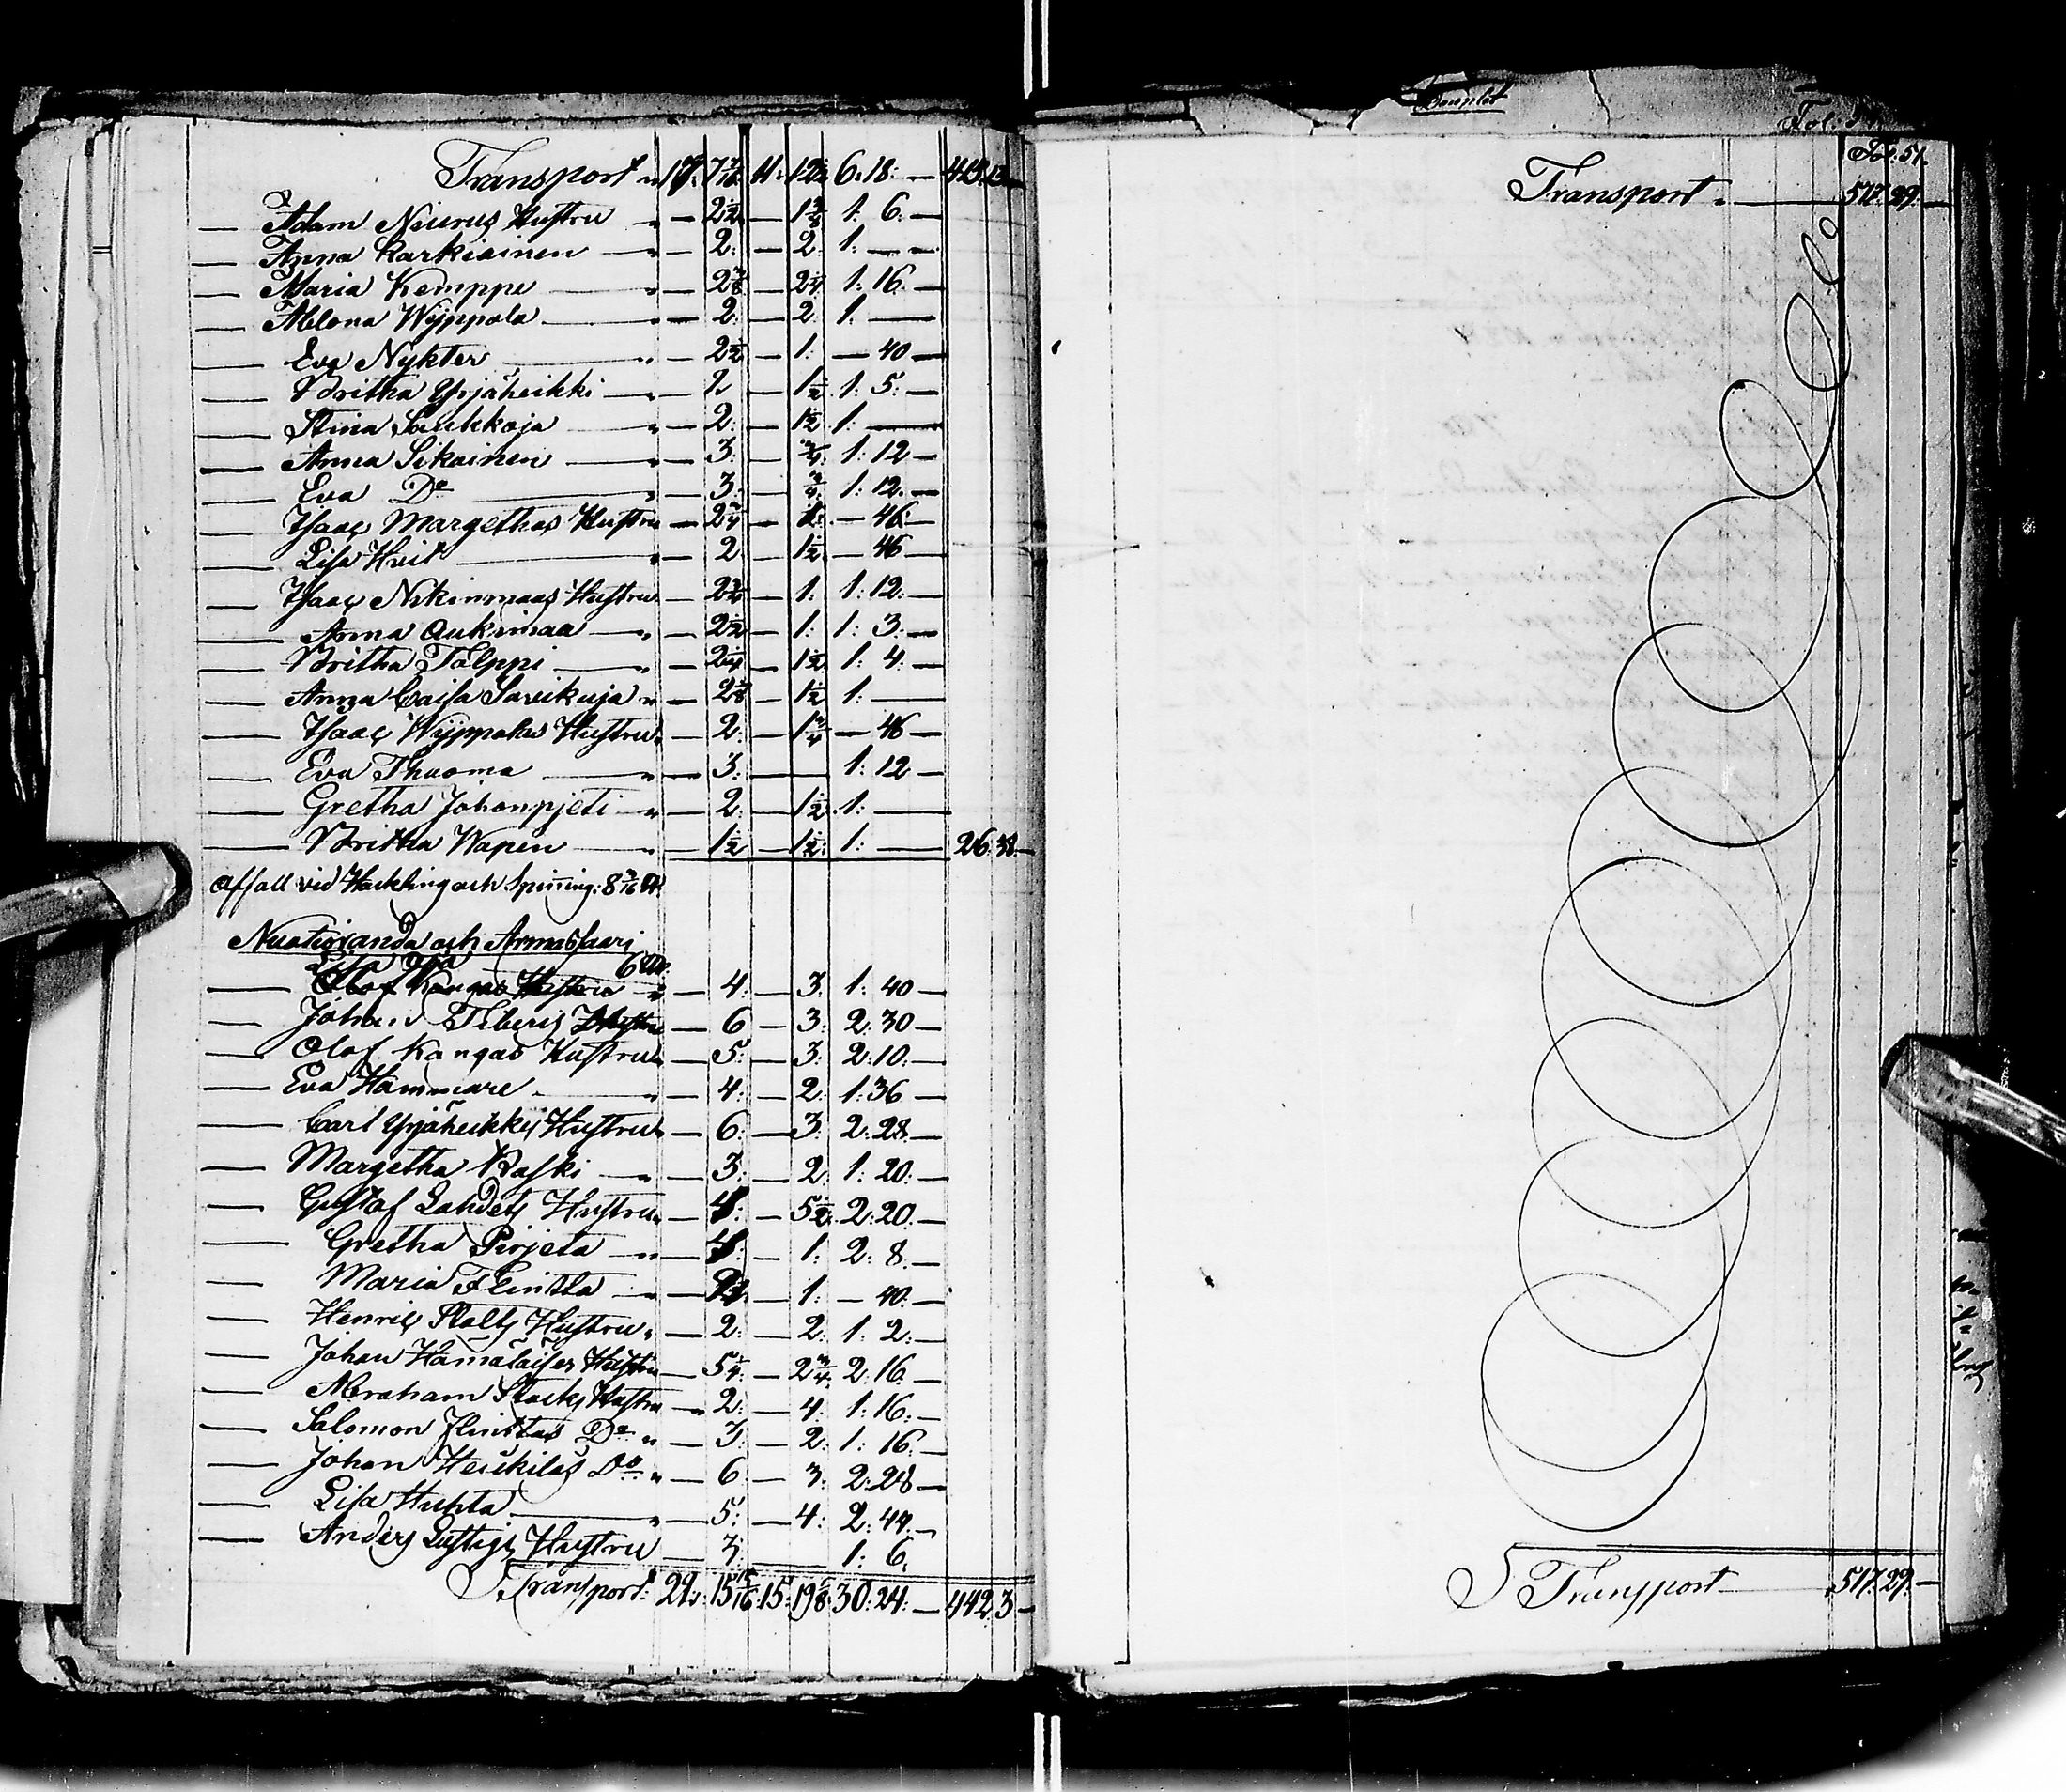 Transport „ 17: 7 7/16 11: 12 6: 18: — 413 13
— Adam Nierus Hustru „ — 2 1/2 — 1 3/8 1: 6: —
— Anna Karkiainen — „ — 2: — 2 1: — —
— Maria Kemppe — „ — 2 3/8 — 2 1/4 1: 16 —
— Abelona Wyppola — „ — 2: — 2: 1: —
— Eva Nykter — „ — 2 1/2 — 1: — 40 —
— Britha Yrjäheikki — „ — 2 — 1 1/2 1: 5: —
— Stina Saukkoja — „ — 2: — 1 1/2 1: —
— Anna Sikainen — „ — 3: — 3/4: 1: 12 —
— Eva Do — „ — 3: — 3/4: 1: 12: —
— Isaac Margethas Hustru — 2 3/4 — 1: — 46: —
— Lisa Hvit — „ — 2 — 1 1/2 — 46 —
— Isaac Nikinmaas Hustru — 2 3/4 — 1: 1: 12: —
— Anna Aukimaa — „ — 2 1/2 — 1: 1: 3: —
— Britha Talppi — „ — 2 1/4 — 1 1/2 1: 4: —
— Anna Caisa Savikuja „ — 2 3/8 — 1 1/2 1: —
— Isaac Wyppolas Hustru — 2: — 1 3/4 — 46 —
— Eva Thuoma — „ — 3: — 1: 12 —
— Gretha Johanpjeti „ — 2: — 1 1/2 1: —
— Britha Wapen — „ — 1 1/2 — 1 1/2 1: — 26 38 —
Affall vid Häckling och Spinning: 8 3/16 ℔
Nuotioranda och Armassaari
Lisa
— Olof Kangas Hustru „ 6 ℔ — 4: — 3: 1: 40 —
— Johan Tiberis Hustru — 6 — 3: 2: 30 —
— Olof Kangas Hustru — 5: — 3: 2: 10: —
— Eva Hammare — „ — 4: — 2: 1: 36 —
— Carl Yrjäheikkis Hustru — 6: — 3: 2: 28 —
— Margetha Raski — „ — 3: — 2: 1: 20: —
— Gustaf Lahdets Hustru — 4: — 5 1/2 2: 20: —
— Gretha Pirjeta — „ — 4: — 1: 2: 8: —
— Maria Flinkta — „ — — 1: — 40: —
— Henric Stålts Hustru „ — 2: — 2: 1: 2: —
— Johan Hämäläises Hustru — 5 1/4: — 2 3/4 2: 16: —
— Abraham Starks Hustru — 2: — 4: 1: 16: —
— Salomon Flinktas Do „ — 3: — 2: 1: 16: —
— Johan Heikilas Do „ — 6 — 3: 2: 28 —
— Lisa Huhta — „ — 5: — 4: 2: 44: —
— Anders Lustigs Hustru — 3: — 1: 6:
Transport „ 29: 15 15/16 15: 19 5/8: 30: 24: — 442: 3 —
Fol: 51.
Transport — 517: 29: —
Transport — 517: 29: —